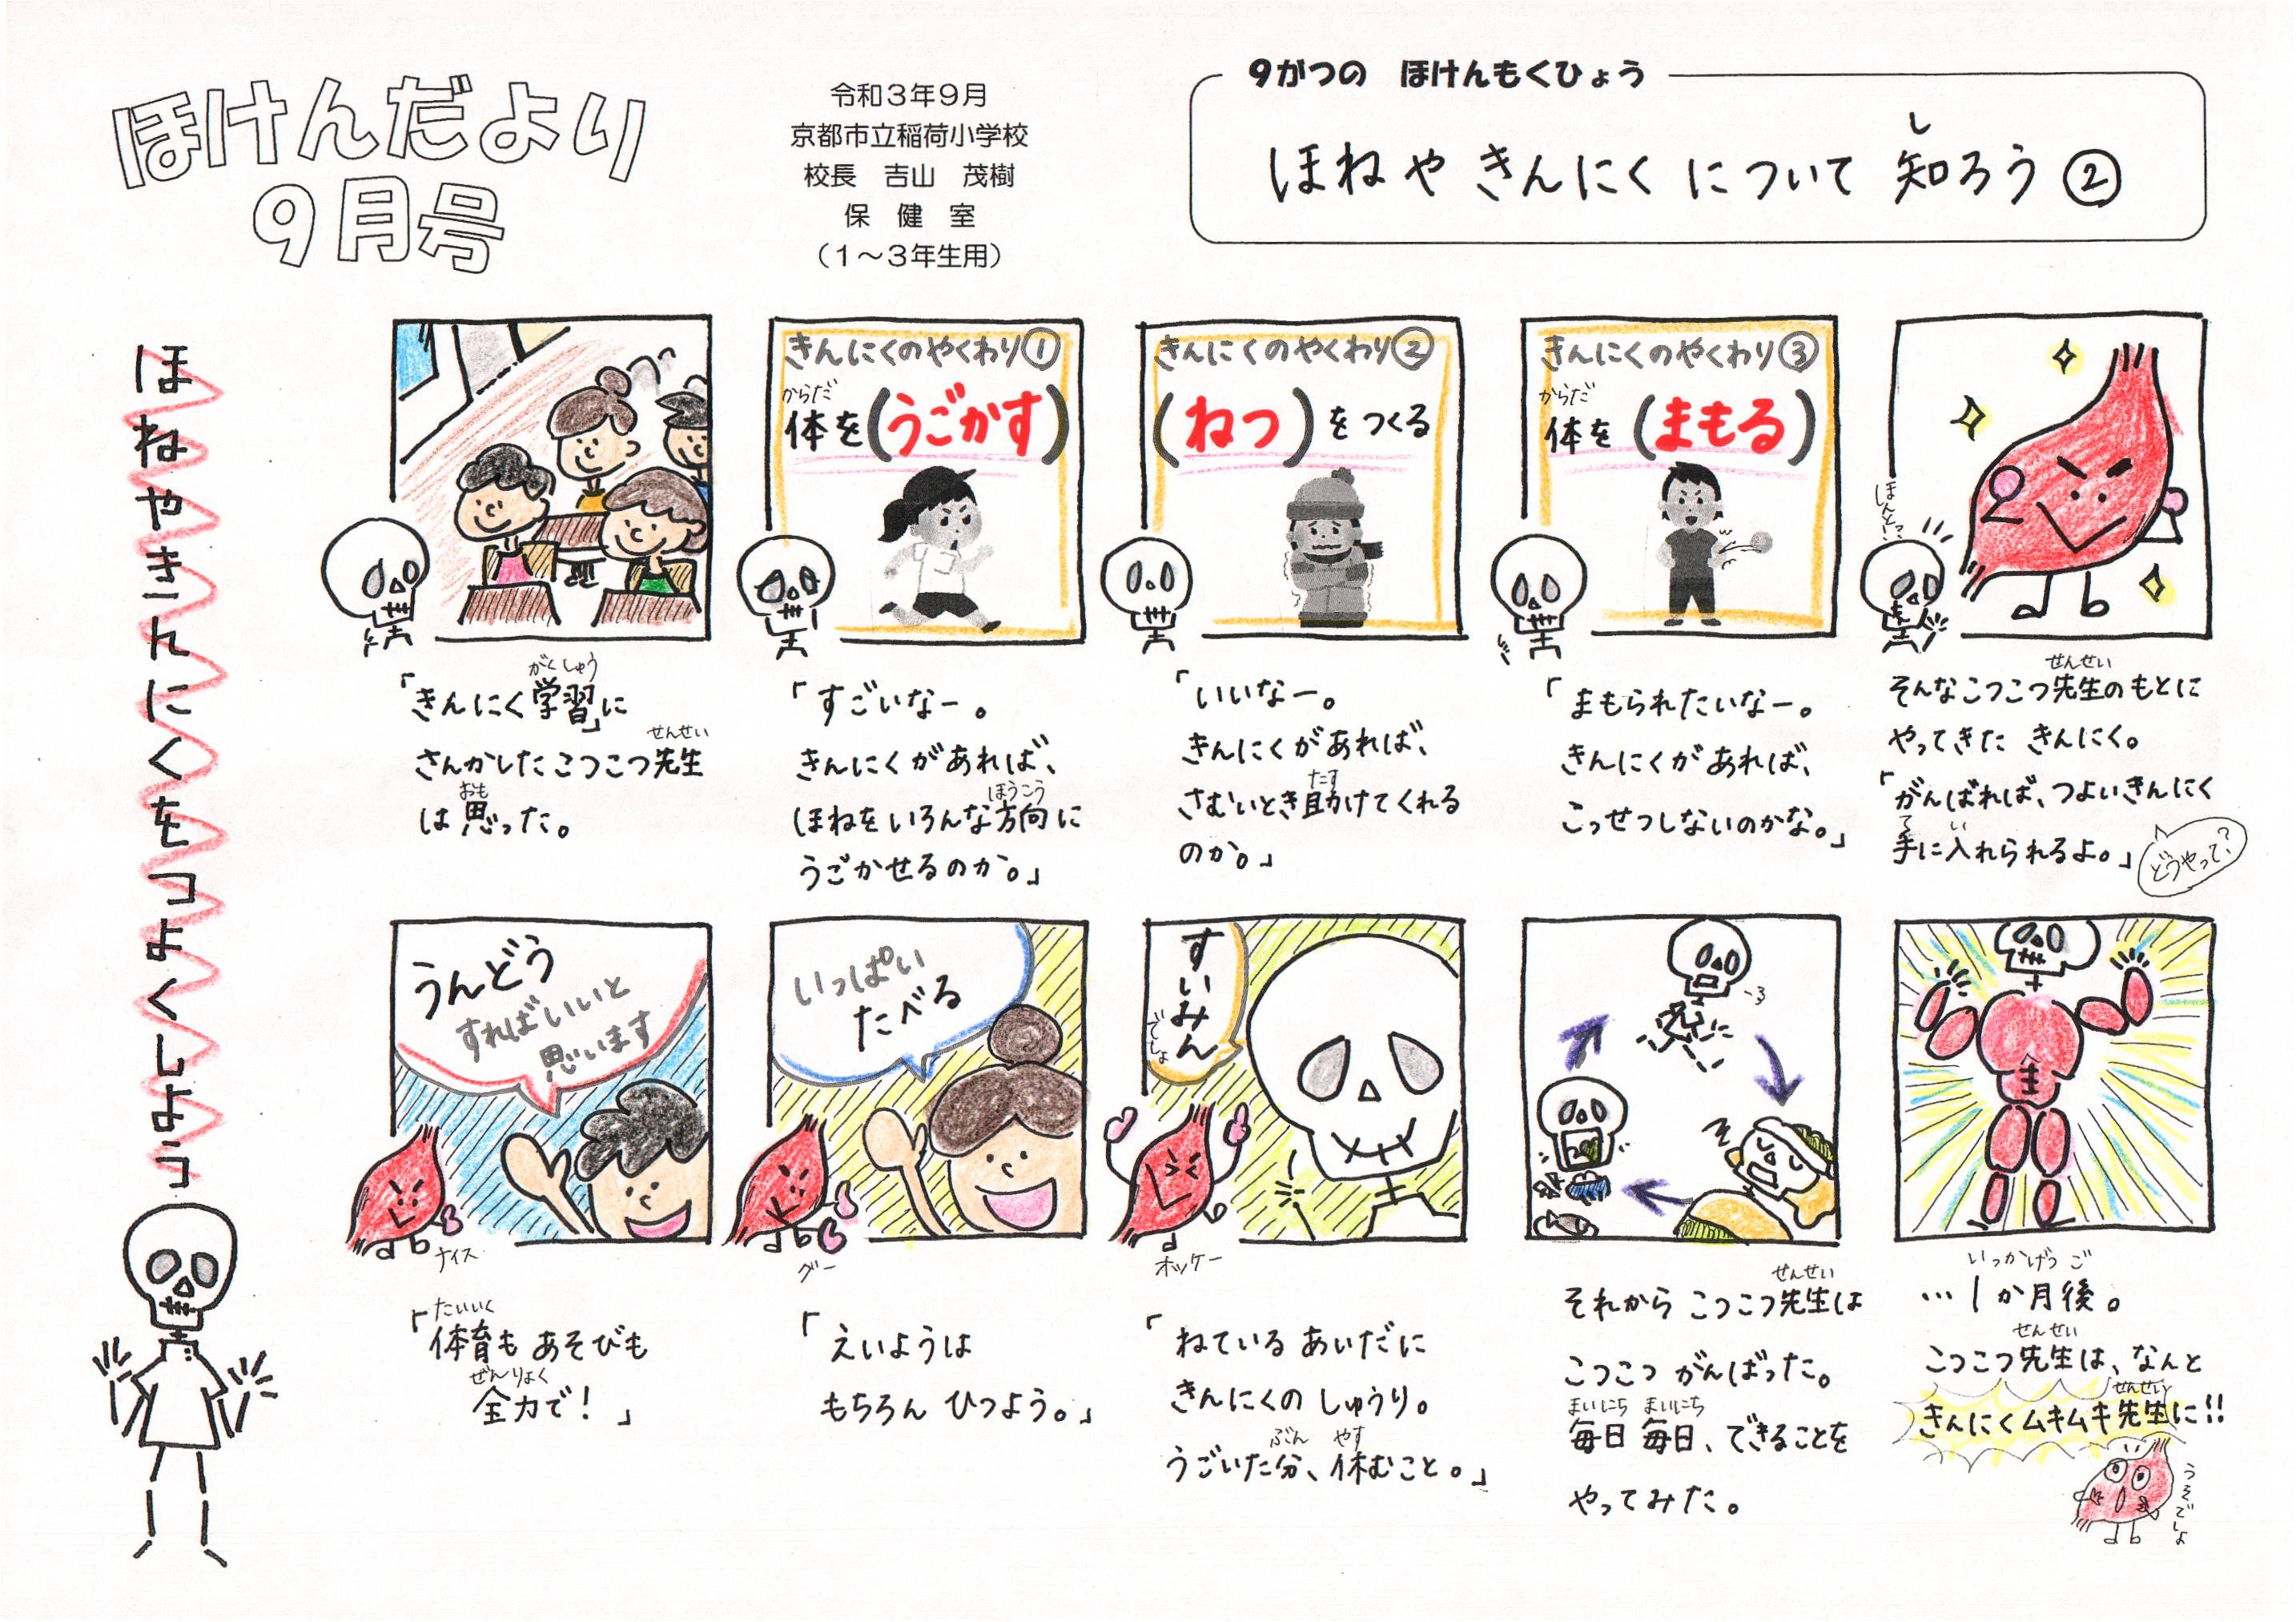 ほけんだより
9月号
令和3年9月
京都市立稲荷小学校
校長　吉山　茂樹
保　健　室
（1～3年生用）
9がつの　ほけんもくひょう
し
ほねや きんにく について 知ろう ②
ほねやきんにくをつよくしよう
きんにくのやくわり①
からだ
体を(うごかす)
きんにくのやくわり②
(ねつ)をつくる
きんにくのやくわり③
からだ
体を(まもる)
ほんと?
がくしゅう
「きんにく学習」に
せんせい
さんかしたこつこつ先生
おも
は思った。
「すごいなー。
きんにくがあれば、
ほうこう
ほねをいろんな方向に
うごかせるのか。」
「いいなー。
きんにくがあれば、
たす
さむいとき助けてくれる
のか。」
「まもられたいなー。
きんにくがあれば、
こっせつしないのかな。」
せんせい
そんなこつこつ先生のもとに
やってきた きんにく。
「がんばれば、つよいきんにく
て い
手に入れられるよ。」
どうやって?
うんどう
すればいいと
思います
ナイス
たいいく
「体育も あそびも
ぜんりょく
全力で!」
いっぱい
たべる
グー
「えいようは
もちろん ひつよう。」
すいみん
でしょ
オッケー
「ねている あいだに
きんにくの しゅうり。
ぶん やす
うごいた分、休むこと。」
せんせい
それから こつこつ先生は
こつこつ がんばった。
まいにち まいにち
毎日 毎日、できることを
やってみた。
いっかげつ ご
…1か月後。
せんせい
こつこつ先生は、なんと
せんせい
きんにくムキムキ先生に!!
うそでしょ